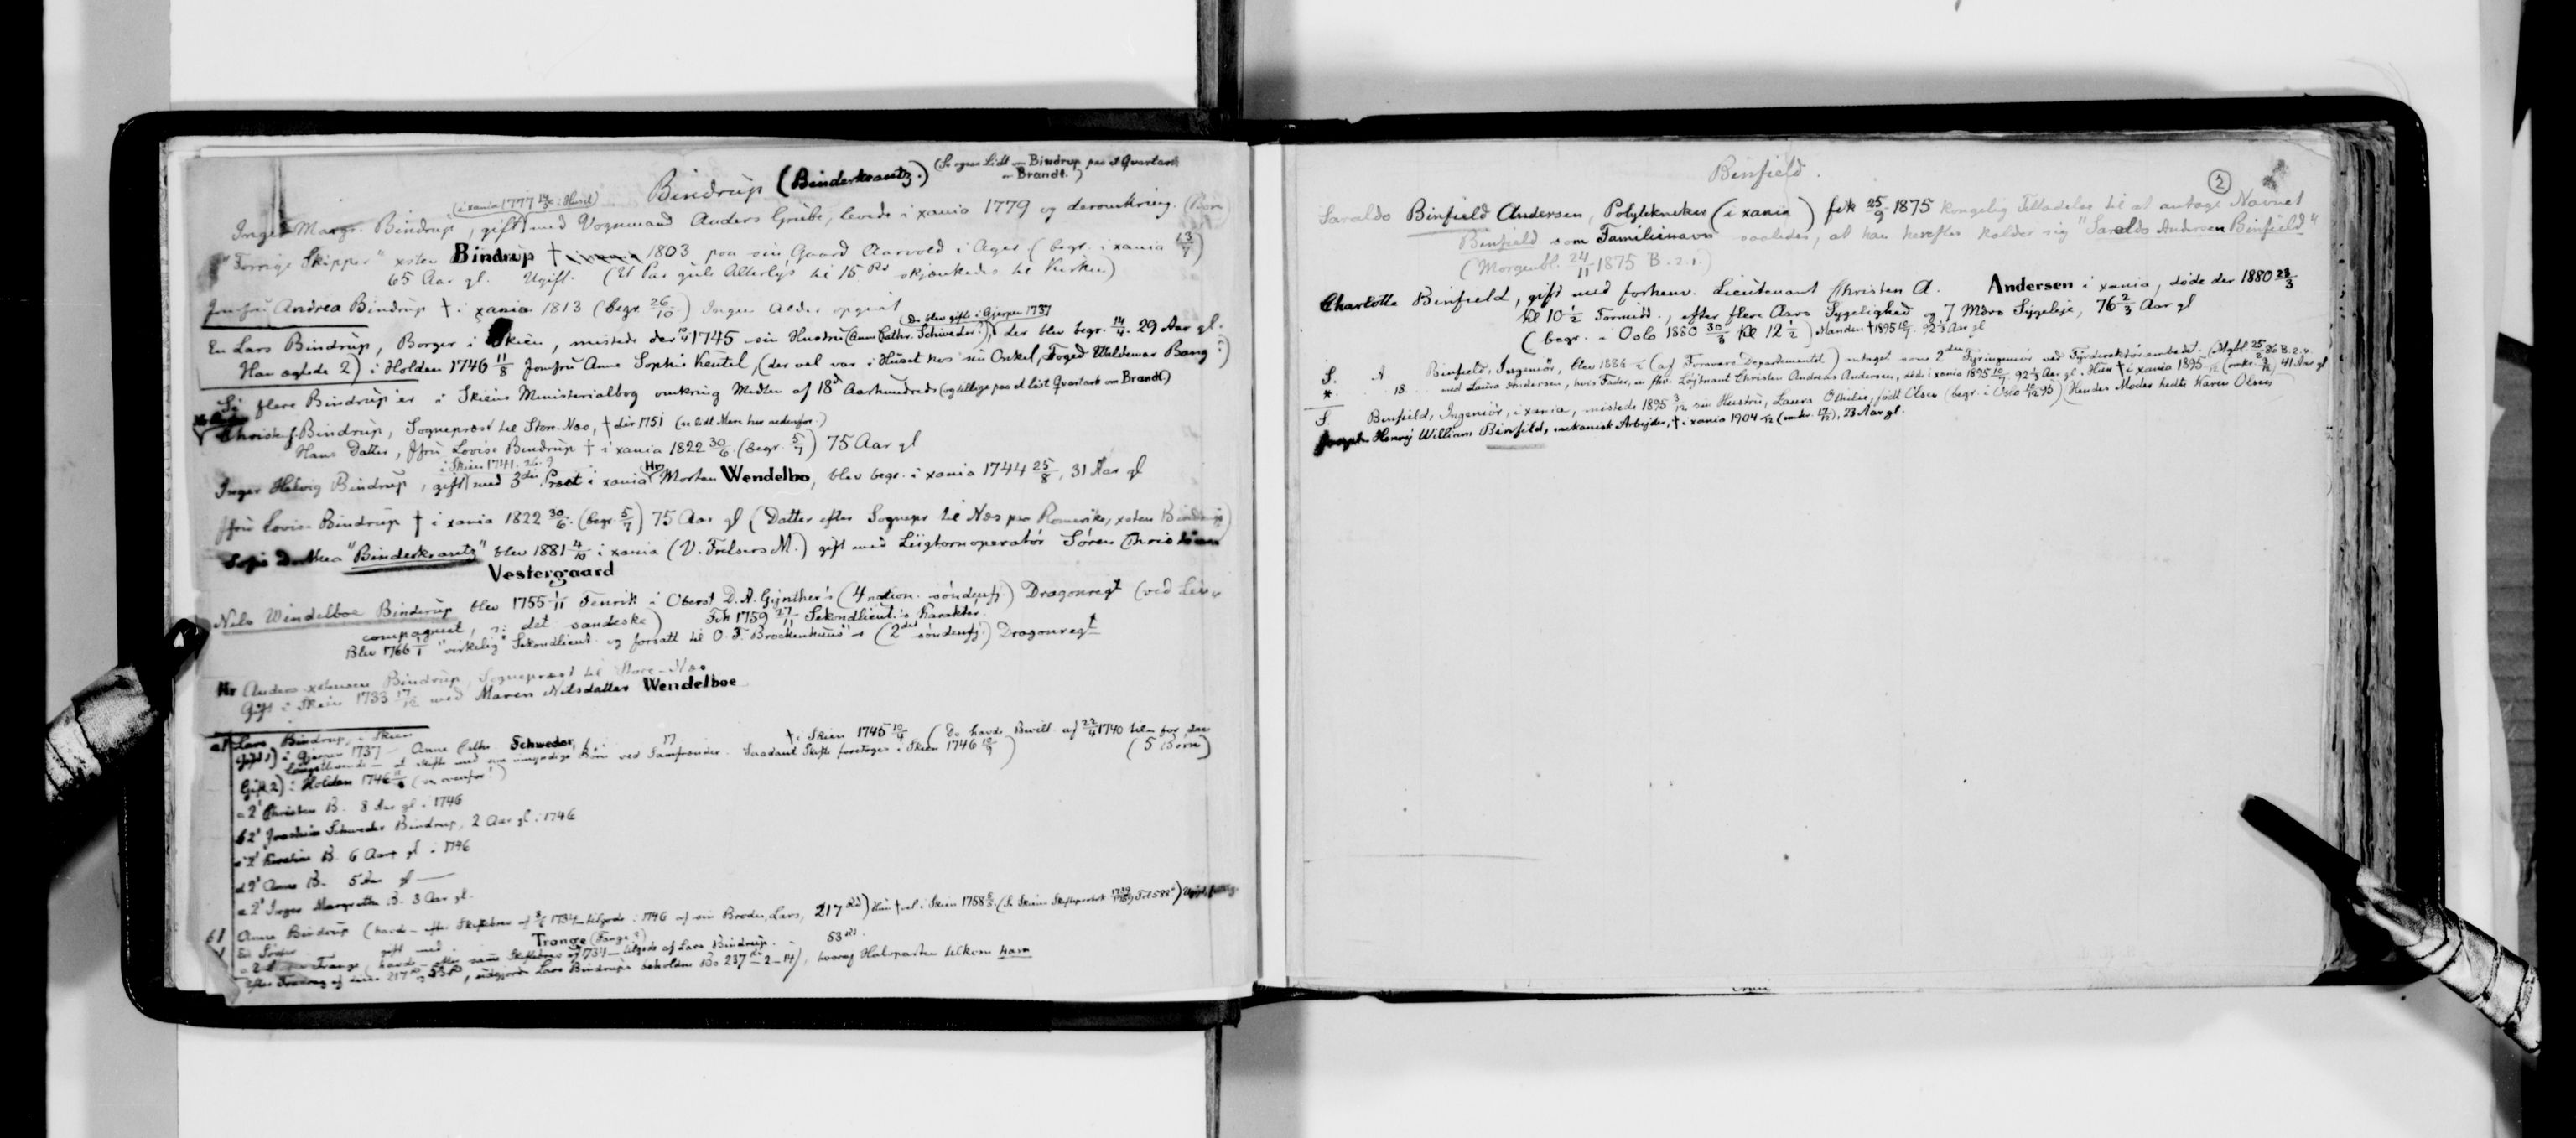 Bindrup (Binderkrantz.) (Se ogsaa Lidt om Bindrup paa et Qvartark
om Brandt.)
(i xania 1777 i Huset)
Inger Margr. Bindrup, gift med Vognmand Anders Grübe, levede i xania 1779 og deromkring.
"Forrige Skipper" xsten Bindrup † 1803 paa sin Gaard Aarvold i Ager (begr. i xania 13/7)
65 Aar gl. Ugift. (Et Par gule Alterlys til 15 Rd skjænkedes til Kirken)
Jomfru Andrea Bindrup † i xania 1813 (begr. 26/10) Ingen Alder opgivet
(De blev gifte i Gjerpen 1737
En Lars Bindrup, Borger i Skien, mistede der 1745 sin Hustru (Anne Cathr. Schweder.), der blev begr. 14/4. 29 Aar gl.
Han ægtede 2) i Holden 1746 11/8 Jomfru Anne Sophie Keutel, (der vel var i Huset hos sin Onkel, Foged Waldemar Bang:)
Se flere Bindrup'er i Skiens Ministerialbog omkring Midten af 18de Aarhundrede (og tillige paa et løst Qvartark om Brandt)
Christen J. Bindrup, Sogneprest til Store-Næs, † der 1751 (se lidt Mere her nedenfor.)
Hans Datter, Jfru Lovise Bindrup † i xania 1822 30/6. (begr. 5/7) 75 Aar gl
i Skien 1741. 26. 9
Inger Hedvig Bindrup, gift med 3die Præst i xania Hr Morten Wendelbo, blev begr. i xania 1744 25/8, 31 Aar gl
Jfru Lovise Bindrup † i xania 1822 30/6. (begr. 5/7) 75 Aar gl (Datter efter Sognepr. til Næs paa Romerike, xsten Bindrup)
Sofie Dorthea "Binderkrantz" blev 1881 4/10 i xania (V. Frelsers M.) gift med Liigtornoperatør Søren Christian
Vestergaard
Nils Windelboe Binderup blev 1755 1/11 Fenrik i Oberst D. A. Günther's (4 nation. søndenfj.) Dragonregt (ved
compagniet, ɔ: det sandeske) Fik 1759 27/11 Sekondlieut.s Karakter.
Blev 1766 1/1 "virkelig" Sekondlieut. og forsatt til O. F. Brockenhuus's (2det søndenfj.) Dragonregt
Hr Anders xstensen Bindrup, Sogneprest til Store-Næs
Gift i Skien 1733 17/12 med Maren Nilsdatter Wendelboe
a1 Lars Bindrup, i Skien
Gift 1) i Gjerpen 1737 Anne Cathr. Schweder, f. 17 † i Skien 1745 10/4 (De havde Bevill. af 22/4 1740 til for den
længstlevende at skifte med sine umyndige Børn ved Samfrænder. Saadant Skifte foretoges i Skien 1746) (5 Børn)
Gift 2) i Holden 1746 11/8 (se ovenfor!)
a 2' Christen B. 8 Aar gl. i 1746
b 2' Joachim Schweder Bindrup, 2 Aar gl. i 1746
c 2' Kirstine B. 6 Aar gl i 1746
d 2' Anne B. 5 Aar gl —
e 2' Inger Margrethe B. 3 Aar gl.
b1 Anne Bindrup (havde efter Skiftebrev af 1734 tilgode i 1746 af sin Broder, Lars, 217 Rd) Hun † vel i Skien 1758
En Søster gift med Trange (Fange?) 53 Rd.
Trange (havde efter samme Skiftebrev af 1734 tilgode af Lars Bindrup.
efter Fradrag af disse 217 Rd og 53 Rd, udgjorde Lars Bindrups beholdne Bo 237-2-14), hvoraf Halvparten tilkom ham
Binfield.
2
Saraldo Binfield Andersen, Polytekniker (i xania) fik 25/9 1875 kongelig Tilladelse til at antage Navnet
Binfield som Familienavn saaledes, at han herefter kalder sig "Saraldo Andersen Binfield"
(Morgenbl. 24/11 1875 B. 2. 1.)
Charlotte Binfield, gift med forhenv. Lieutenant Christen A. Andersen i xania, døde der 1880 23/3
Kl 10½ Formidd., efter flere Aars Sygelighed og 7 Mdrs Sygeleje, 76 2/3 Aar gl
(begr. i Oslo 1880 30/3 Kl 12½) Manden † 1895 10/7. 92 1/3 Aar gl
S. A. Binfield, Ingeniør, blev 1886 i (af Forsvars Departementet) antaget som 2den Fyringeniør ved Fyrdirektørembedet.
* 18 med Laura Andersen, hvis Fader, en fhv. Løjtnant Christen Andreas Andersen, døde i xania 1895 10/7 92 1/3 Aar gl. Hun † i xania 1895 41 Aar gl
S. Binfield, Ingeniør, i xania, mistede 1895 3/12 sin Hustru, Laura Othilie, født Olsen (begr. i Oslo 10/12 95) Hendes Moder hedte Karen Olsen
Joseph Henry William Binfield, mekanisk Arbejder, † i xania 1904, 23 Aar gl.